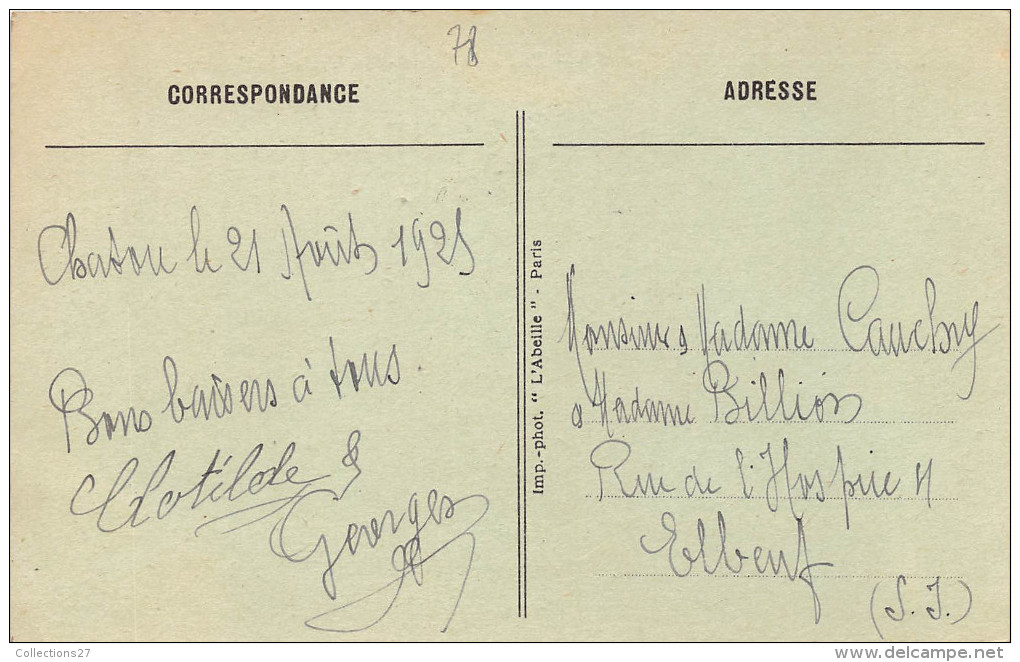 78
CORRESPONDANCE
Chatou le 21 Août 1925
Bons baisers à tous.
Clotilde &
Georges
Imp.-phot. "L'Abeille" - Paris
ADRESSE
Monsieur & Madame Cauchy
& Madame Billion
Rue de l'Hospice 4
Elbeuf
(S. I.)
Collections27
www.delcampe.net